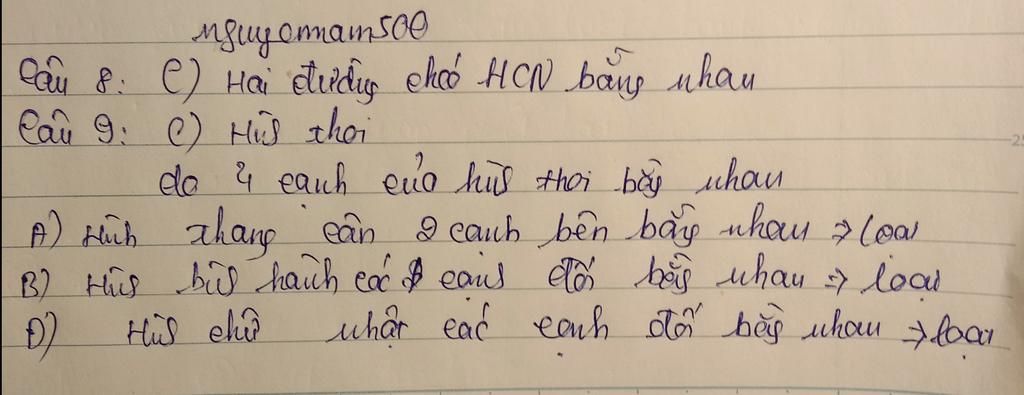 nguyennam500
Câu 8: C) Hai đường chéo HCN bằng nhau
Câu 9: C) Hình thoi
do 4 cạnh của hình thoi bằng nhau
A) Hình thang cân 2 cạnh bên bằng nhau => loại
B) Hình bình hành các cạnh đối bằng nhau => loại
D) Hình chữ nhật các cạnh đối bằng nhau => loại